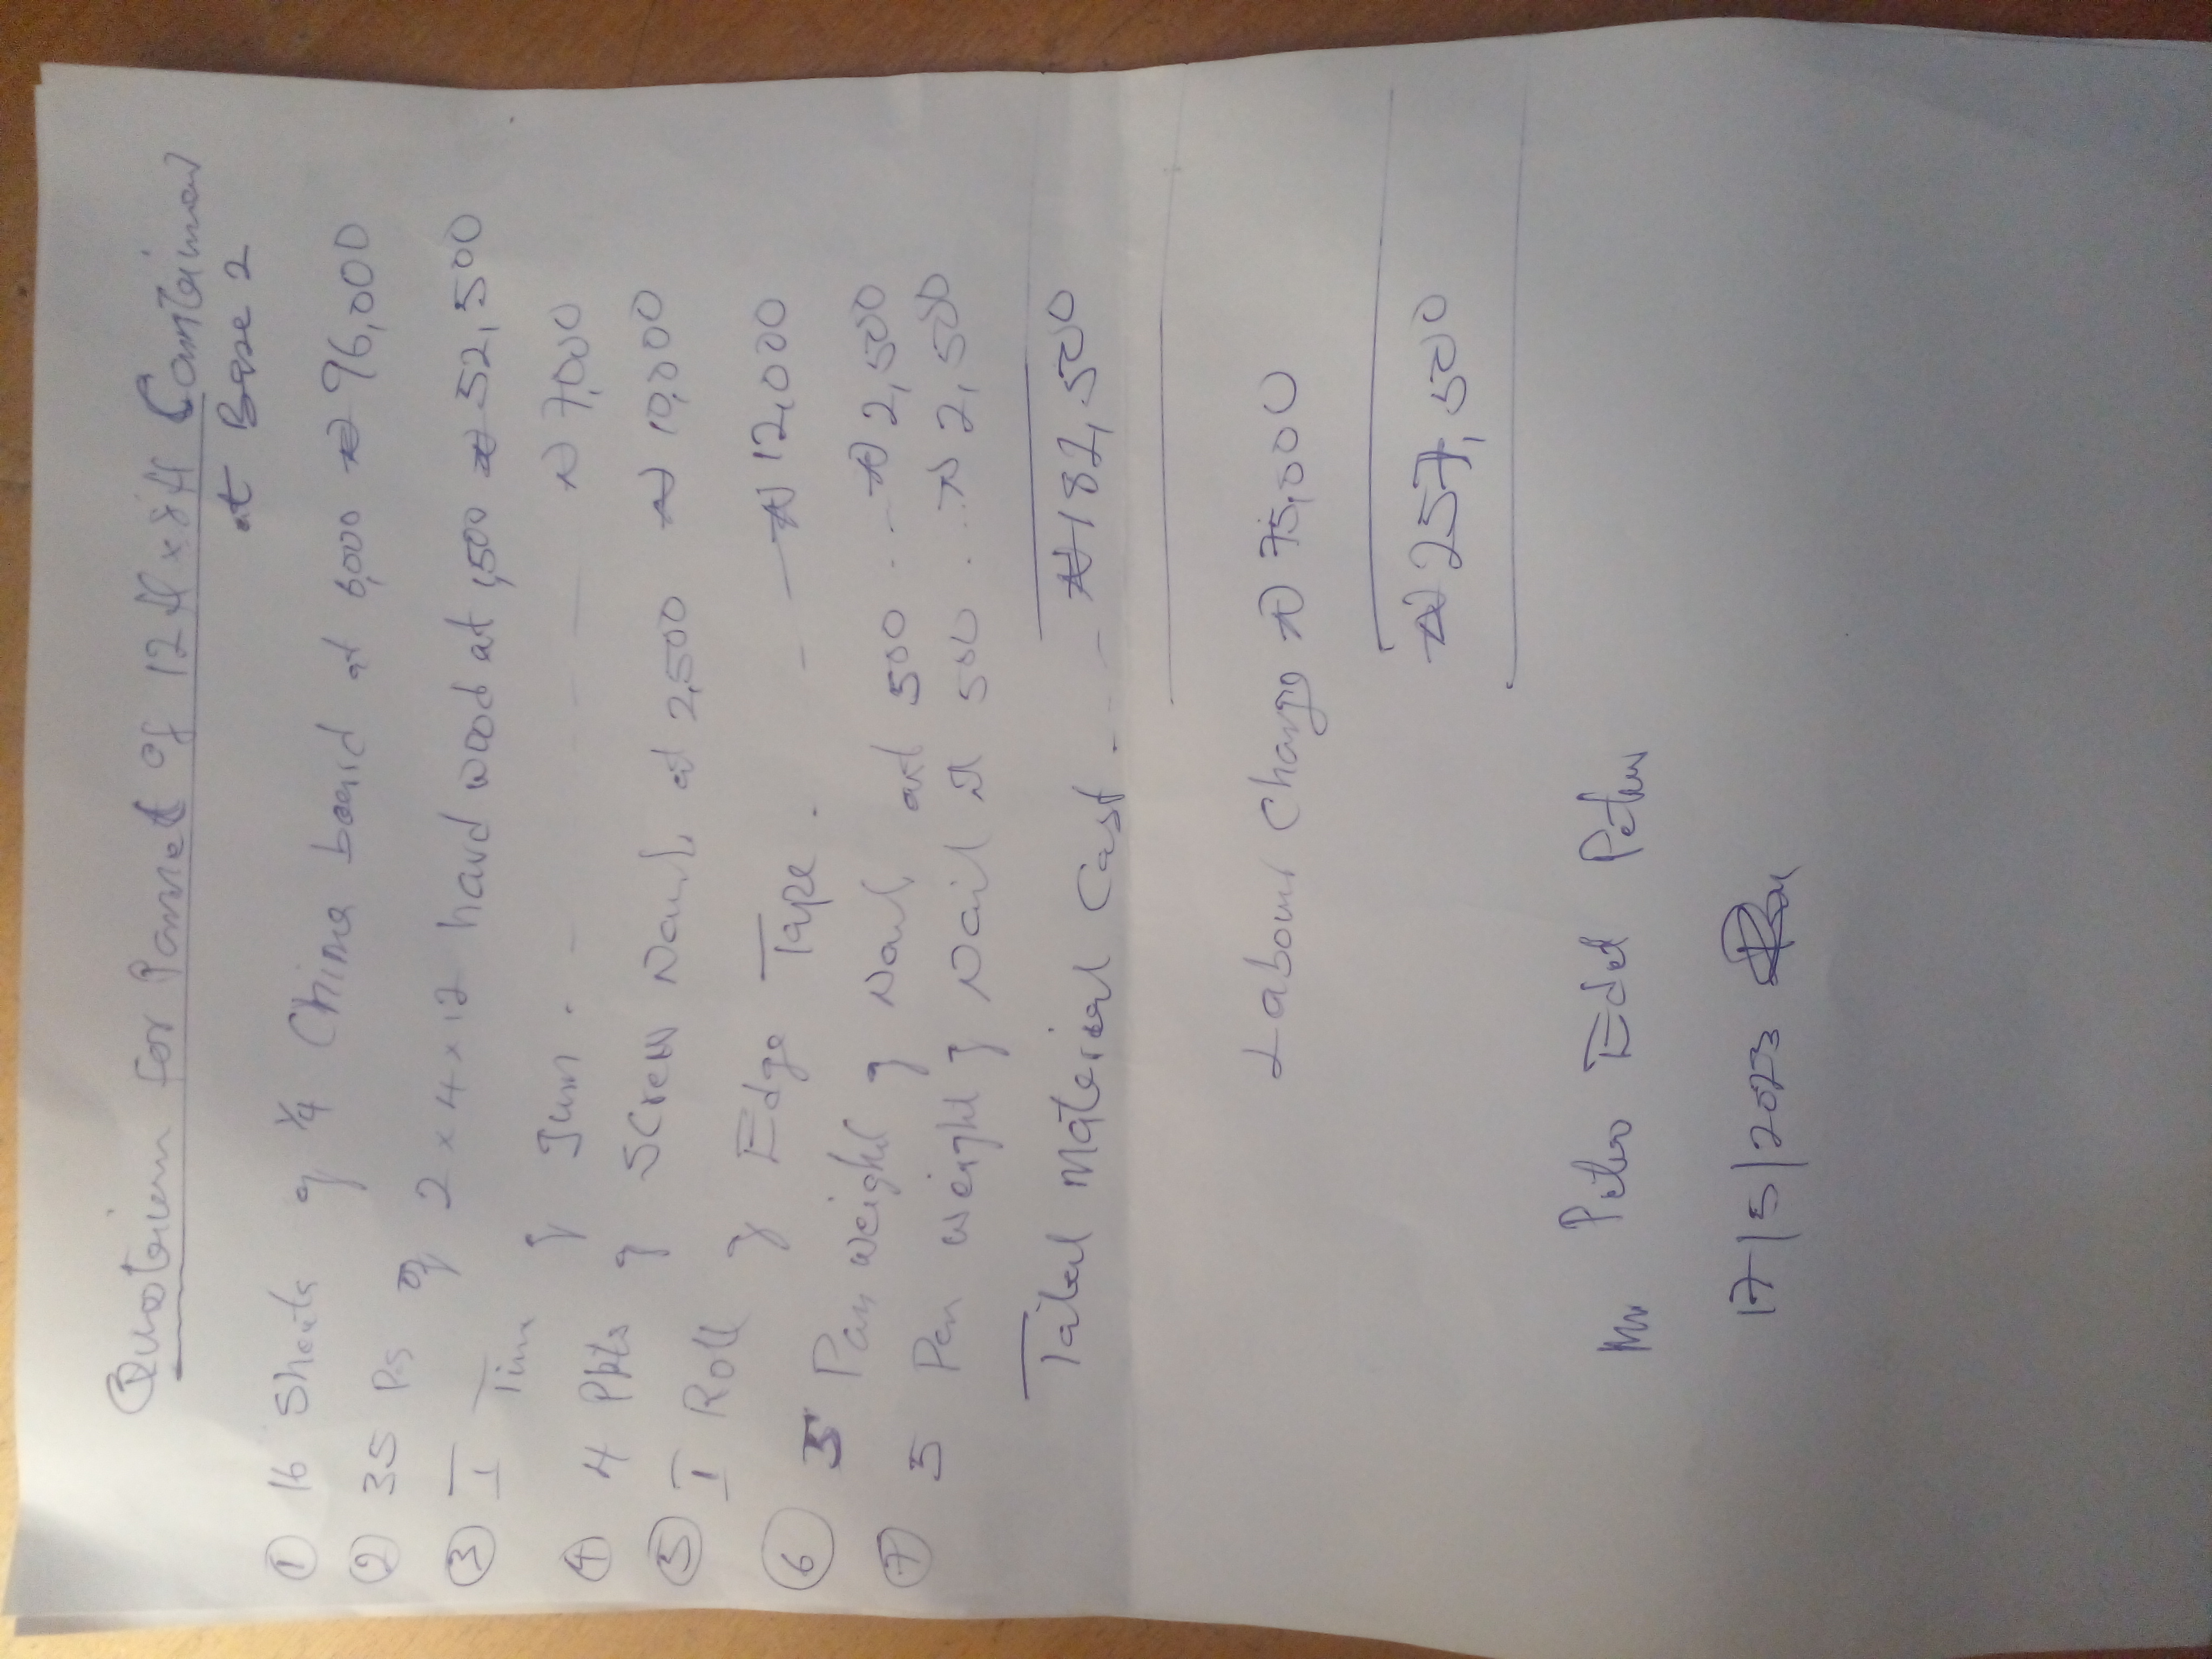 Quotation for Pannel of 12ft x 8ft Container
at Base 2
① 16 Sheets of 1/4 China board at 6,000 ₦ 96,000
② 35 Pcs of 2 x 4 x 12 hard wood at 1,500 ₦ 52,500
③ I Tin of Gum . - - - - ₦ 7,000
④ 4 Pkts of Screw Nails at 2,500 ₦ 10,000
⑤ I Roll of Edge Tape . - - ₦ 12,000
⑥ 5 Pan weight of Nail at 500 . . - ₦ 2,500
⑦ 5 Pen weight of Nail at 500 . . . ₦ 2,500
Total Material Cost . - - - ₦ 182,500
Labour Charge ₦ 75,000
₦ 257,500
Mr Peter Edet Peter
17/5/2023